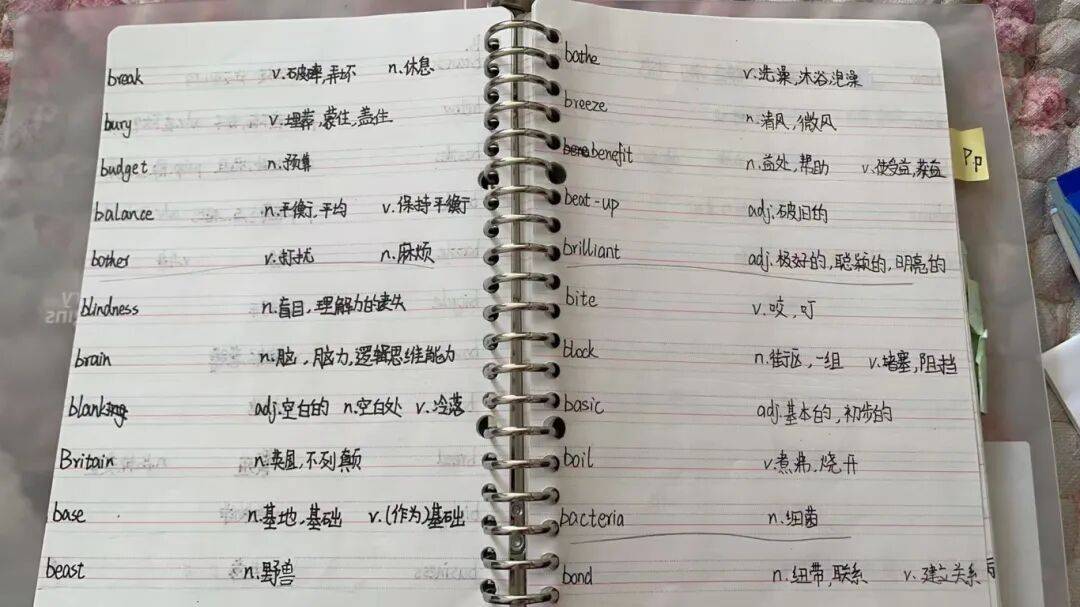 break v.破碎,弄坏 n.休息
bury v.埋葬,蒙住,盖住
budget n.预算
balance n.平衡,平均 v.保持平衡
bother v.打扰 n.麻烦
blindness n.盲目,理解力的缺失
brain n.脑,脑力,逻辑思维能力
blank adj.空白的 n.空白处 v.冷落
Britain n.英国,不列颠
base n.基地,基础 v.(作为)基础
beast n.野兽
bathe v.洗澡,沐浴,泡澡
breeze n.清风,微风
benefit n.益处,帮助 v.使受益,获益
beat-up adj.破旧的
brilliant adj.极好的,聪颖的,明亮的
bite v.咬,叮
block n.街区,一组 v.堵塞,阻挡
basic adj.基本的,初步的
boil v.煮沸,烧开
bacteria n.细菌
bond n.纽带,联系 v.建立关系
P.p